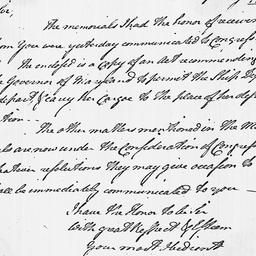 Sir,
The memorials I had the honor of receiving
from You were yesterday communicated to Congress
The enclosed is a Copy of an Act recommending
Governor of Maryland to permit the Ship
depart & carry her Cargoe to the place of her des
tion —
The other matters mentioned in the Me
ls are now under the Consideration of Congress
whatever resolutions they may give occasion to
shall be immediately communicated to you —
I have the Honor to be Sir
with great Respect & Esteem
Your most Obedient